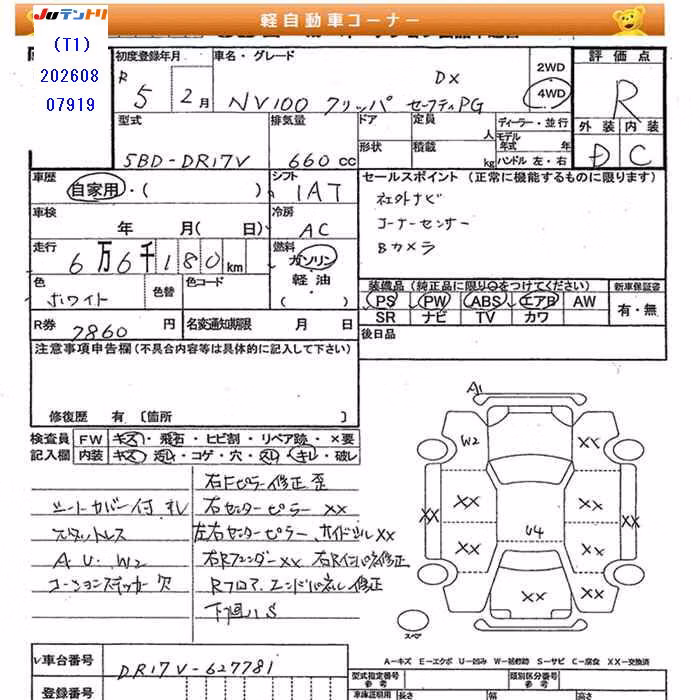 JUテントリ
軽自動車コーナー
(T1)
202608
07919
初度登録年月
車名・グレード
2WD
4WD
評価点
R 5 2月
NV100 クリッパ セーフティPG
DX
R
型式
排気量
ドア
定員
人
ディーラー・並行
外装
内装
5BD-DR17V
660cc
形状
積載
kg
モデル年式
年
ハンドル 左・右
D
C
車歴
自家用・( )
シフト
IAT
セールスポイント (正常に機能するものに限ります)
社外ナビ
コーナーセンサー
Bカメラ
車検
年 月( 日)
冷房
AC
走行
6万6千180km
燃料
ガソリン
軽油
( )
色
ホワイト
色替
色コード
装備品 (純正品に限り○をつけてください)
新車保証書
PS PW ABS エアB AW
SR ナビ TV カワ
有・無
R券
7860円
名変通知期限 月 日
後日品
注意事項申告欄 (不具合内容等は具体的に記入して下さい)
修復歴 有 〔箇所 〕
検査員
記入欄
FW キズ・飛石・ヒビ割・リペア跡・×要
内装 キズ・汚レ・コゲ・穴・スレ・キレ・破レ
シートカバー付 オレ
スタットレス
A U W2
コーションステッカー欠
右Fピラー修正歪
右センターピラー XX
左右センターピラー、サイドシルXX
右RフェンダーXX 右Rインパネ修正
Rフロア、エンドパネル修正
下廻りS
A1
W2
XX
XX
XX
XX
XX
U4
XX
XX
XX
XX
スペア
A-キズ E-エクボ U-凹み W-補修跡 S-サビ C-腐食 XX-交換済
車台番号
DR17V-627781
登録番号
型式指定番号
参考
類別区分番号
参考
車庫証明用
長さ
幅
高さ